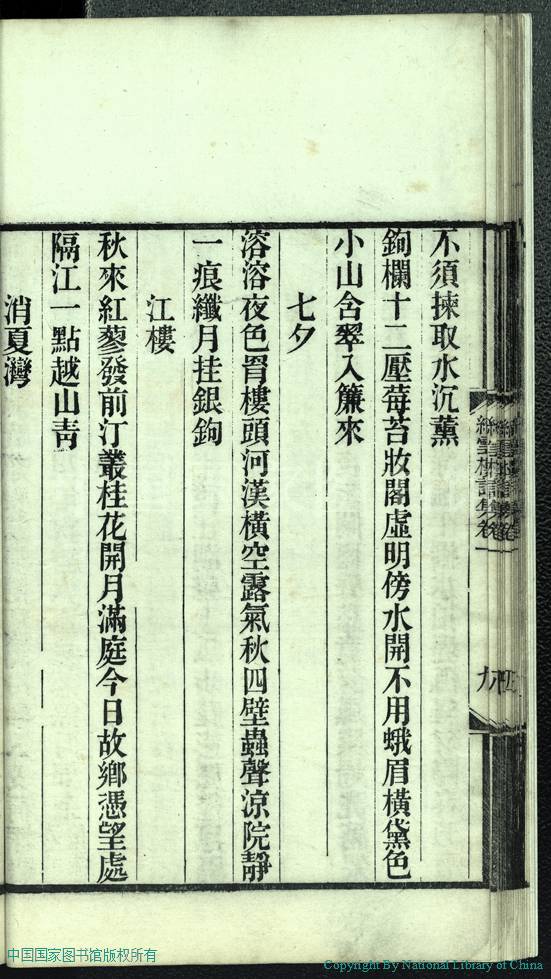 不須揀取水沉薰
鉤欄十二壓莓苔妝閣虛明傍水開不用蛾眉橫黛色
小山含翠入簾來
七夕
溶溶夜色罥樓頭河漢橫空露氣秋四壁蟲聲涼院靜
一痕纖月挂銀鉤
江樓
秋來紅蓼發前汀叢桂花開月滿庭今日故鄉憑望處
隔江一點越山青
消夏灣
中国国家图书馆版权所有
Copyright By National Library of China